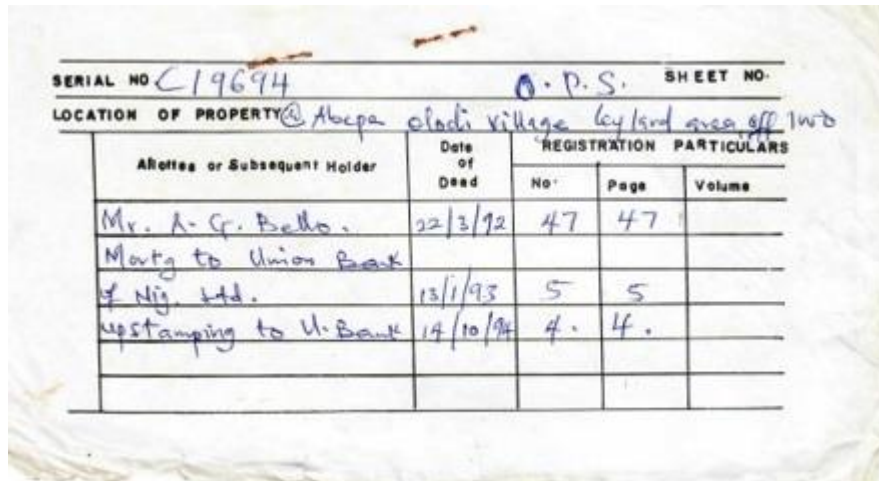 SERIAL NO C19694 O.P.S. SHEET NO.
LOCATION OF PROPERTY @ Abepa olodi village Leyland area off Iwo
Allottee or Subsequent Holder Date of Deed REGISTRATION PARTICULARS
No. Page Volume
Mr. A. G. Bello. 22/3/92 47 47
Mortg to Union Bank
of Nig. Ltd. 13/1/93 5 5
upstamping to U. Bank 14/10/94 4. 4.